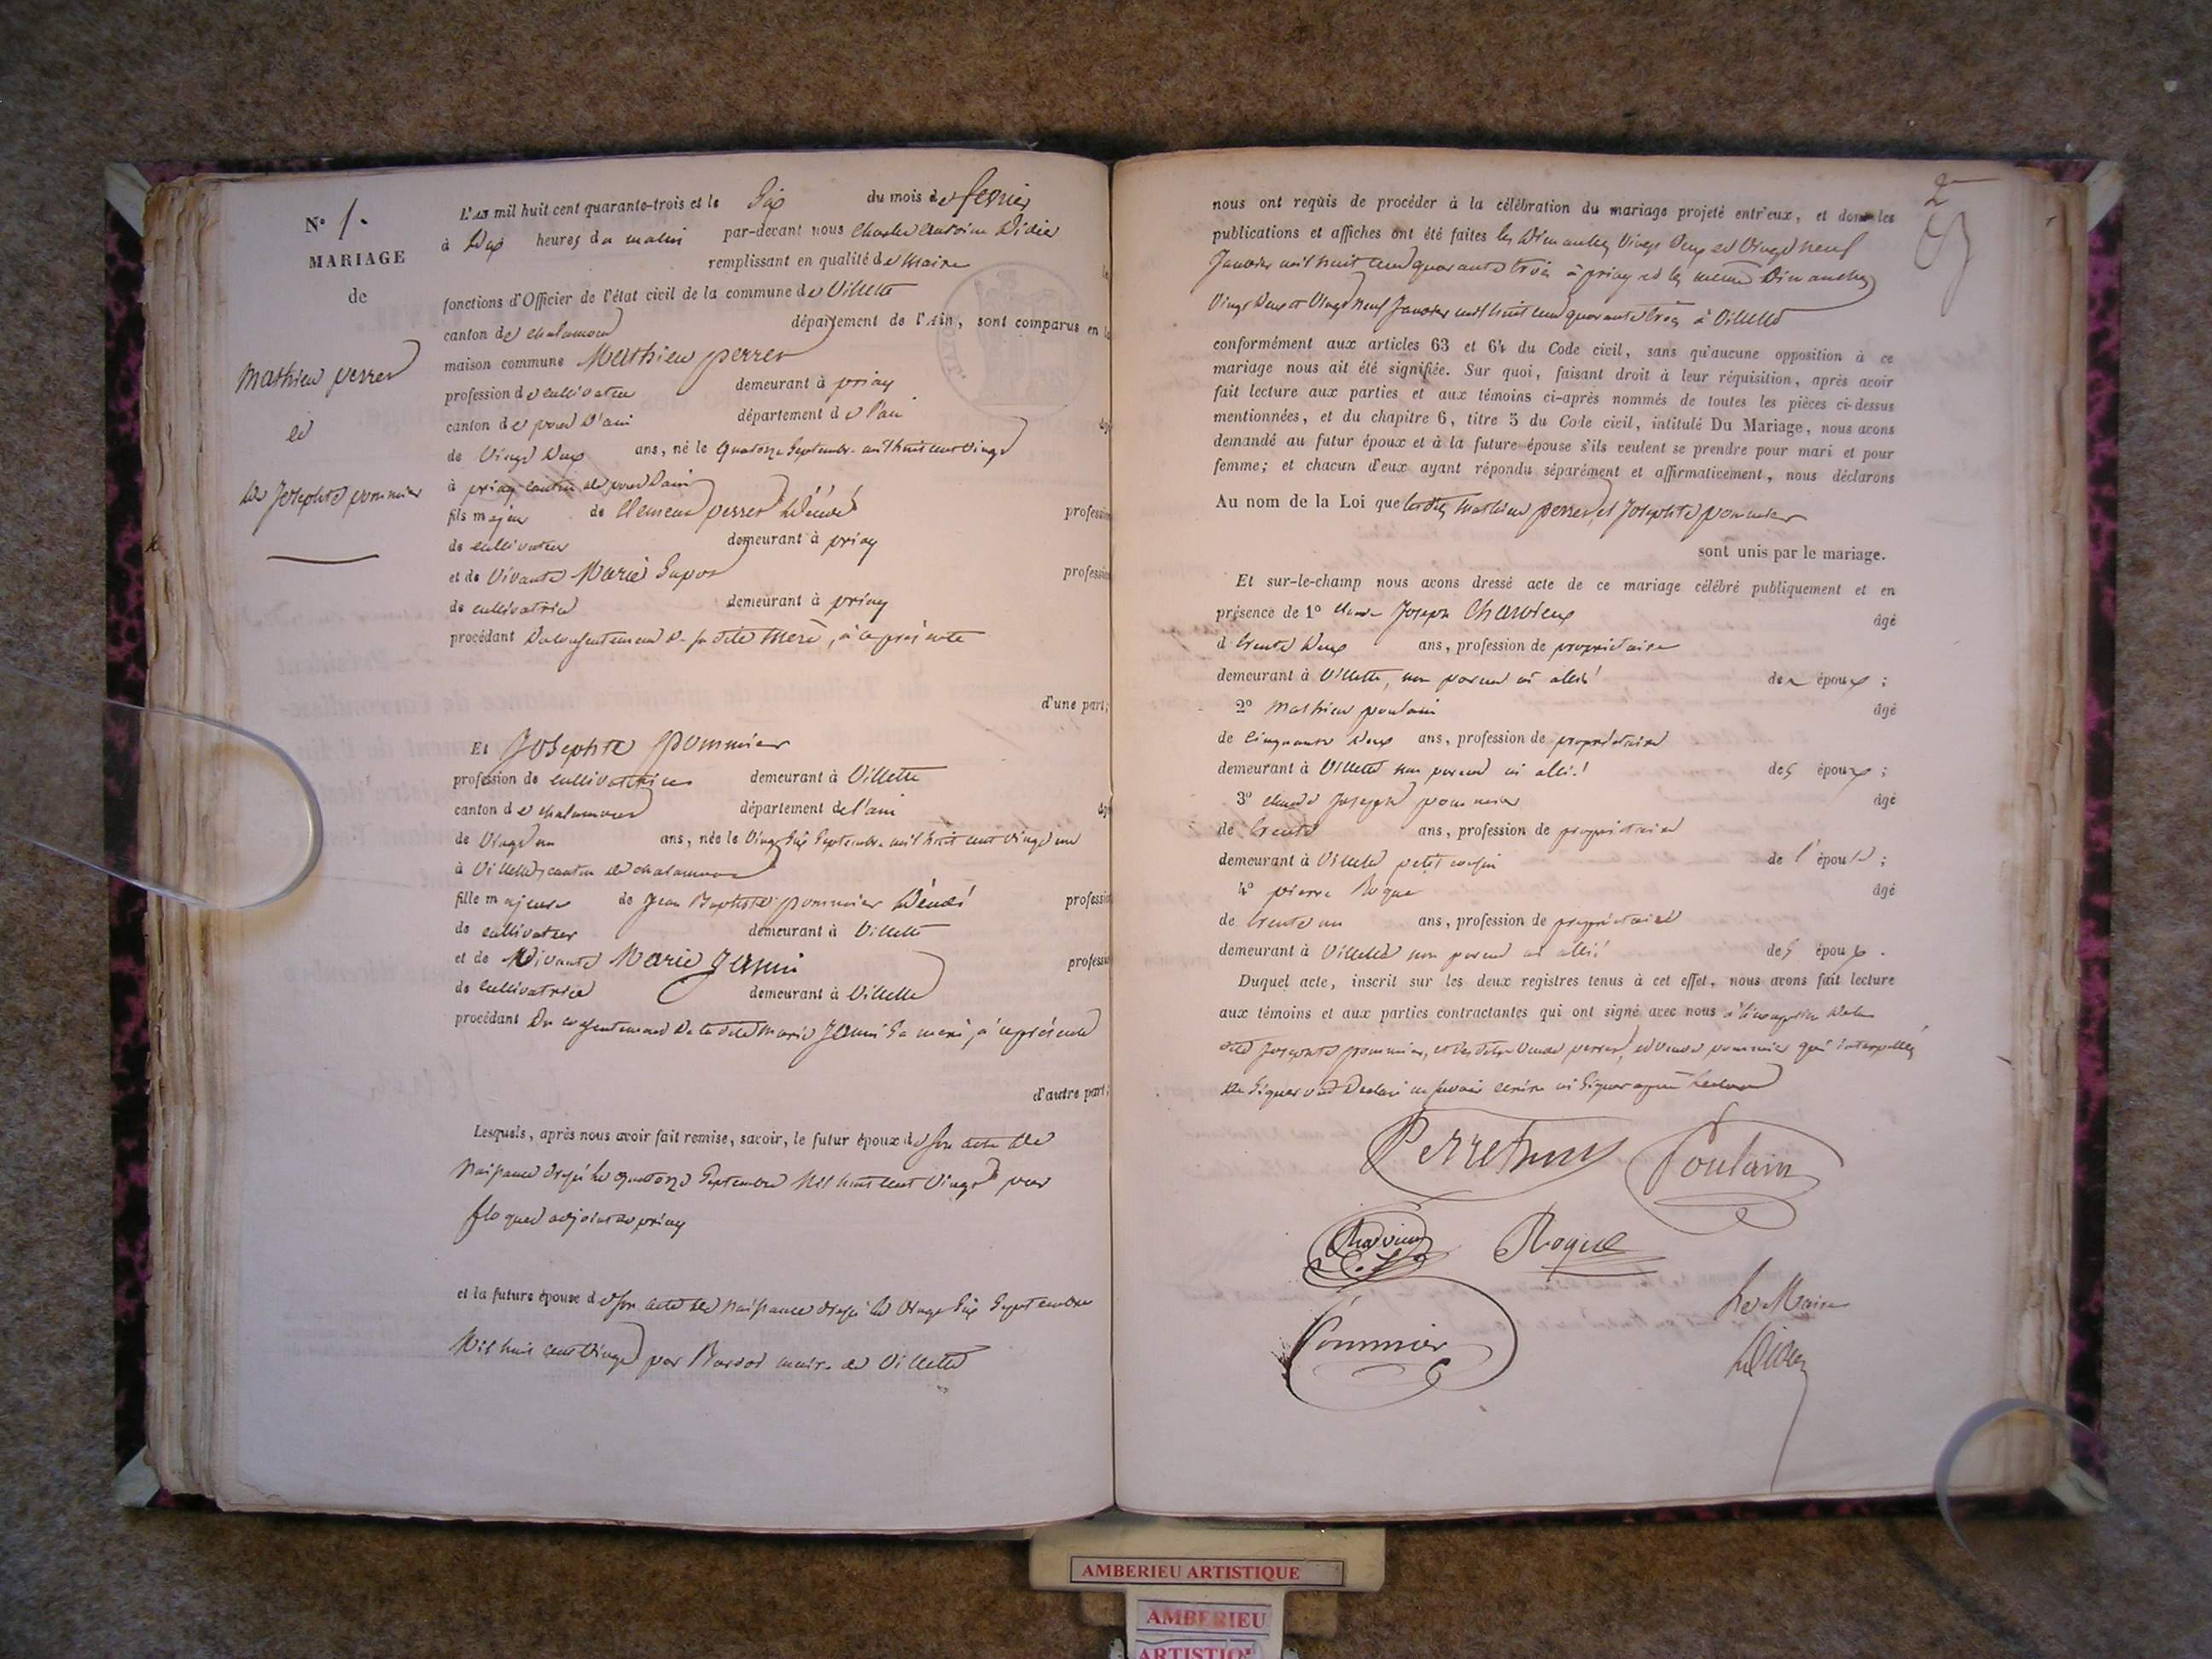 N° 1.
MARIAGE
de
Mathieu perret
et
de Josephte pommier
L'an mil huit cent quarante-trois et le Six du mois de fevrier
à Dix heures du matin par-devant nous Charles Antoine Didier
remplissant en qualité de Maire
fonctions d'Officier de l'état civil de la commune de Villette
canton de chalamont département de l'Ain, sont comparus en la
maison commune Mathieu perret
profession de cultivateur demeurant à priay
canton de pont d'ain département de l'ain âgé
de Vingt Deux ans, né le quatorze Septembre mil huit cent Vingt
à priay canton de pont d'ain
fils majeur de Clement perret Décédé profession
de cultivateur demeurant à priay
et de Vivante Marie profession
de cultivatrice demeurant à priay
procédant du consentement de sa dite Mère, à ce présente
d'une part;
Et Josephte Pommier
profession de cultivatrice demeurant à Villette
canton de chalamont département de l'ain âgé
de Vingt un ans, née le Vingt Six Septembre mil huit cent Vingt un
à Villette, canton de chalamont
fille majeure de Jean Baptiste pommier Décédé profession
de cultivateur demeurant à Villette
et de Vivante Marie Janin profession
de cultivatrice demeurant à Villette
procédant Du consentement De la dite Marie Janin Sa mère, à ce présente
d'autre part;
Lesquels, après nous avoir fait remise, savoir, le futur époux de son acte de
Naissance dressé le quatorze Septembre Mil huit cent Vingt par
floquet adjoint de priay
et la future épouse de son acte de Naissance dressé le Vingt Six Septembre
Mil huit cent Vingt par maire de Villette
2
nous ont requis de procéder à la célébration du mariage projeté entr'eux, et dont les
publications et affiches ont été faites les Dimanches Vingt Deux et Vingt neuf
Janvier mil huit cent quarante trois à priay et les mêmes Dimanches
Vingt Deux et Vingt Neuf Janvier mil huit cent quarante trois à Villette
conformément aux articles 63 et 64 du Code civil, sans qu'aucune opposition à ce
mariage nous ait été signifiée. Sur quoi, faisant droit à leur réquisition, après avoir
fait lecture aux parties et aux témoins ci-après nommés de toutes les pièces ci-dessus
mentionnées, et du chapitre 6, titre 5 du Code civil, intitulé Du Mariage, nous avons
demandé au futur époux et à la future épouse s'ils veulent se prendre pour mari et pour
femme; et chacun d'eux ayant répondu séparément et affirmativement, nous déclarons
Au nom de la Loi que lesdits Mathieu perret et Josephte pommier
sont unis par le mariage.
Et sur-le-champ nous avons dressé acte de ce mariage célébré publiquement et en
présence de 1° Claude Joseph Charvieux âgé
d trente Deux ans, profession de propriétaire
demeurant à Villette, non parent ni allié des époux;
2° Mathieu poulain âgé
de Cinquante Deux ans, profession de propriétaire
demeurant à Villette non parent ni allié des époux;
3° Claude Joseph pommier âgé
de trente ans, profession de propriétaire
demeurant à Villette petit cousin de l'épouse;
4° pierre Roque âgé
de trente un ans, profession de propriétaire
demeurant à Villette non parent ni allié des époux.
Duquel acte, inscrit sur les deux registres tenus à cet effet, nous avons fait lecture
aux témoins et aux parties contractantes qui ont signé avec nous à l'exception de la
dite Josephte pommier, et Veuve perret, et Veuve pommier qui interpellés
de Signer ont Déclaré ne Savoir écrire ni Signer après lecture
Perret
Poulain
Charvieux
Roque
Pommier
Le Maire
Didier
AMBERIEU ARTISTIQUE
AMBERIEU
ARTISTIQ